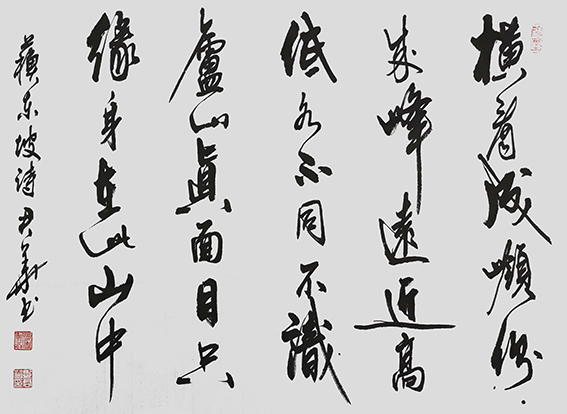 橫看成嶺側
成峰遠近高
低各不同不識
廬山真面目只
緣身在此山中
蘇东坡诗君華书